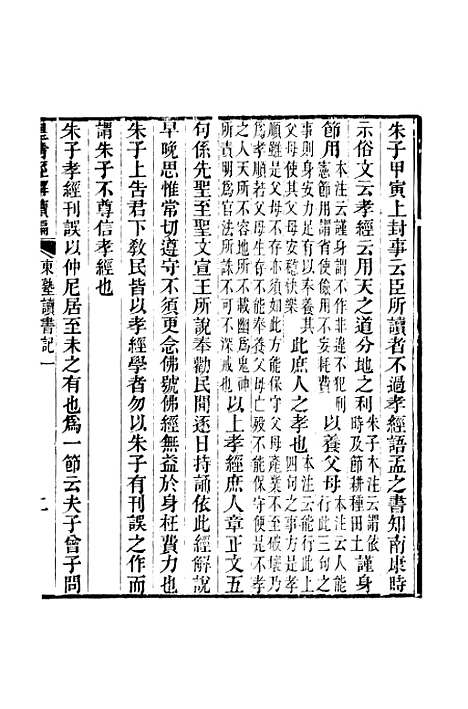 朱子甲寅上封事云臣所讀者不過孝經語孟之書知南康時
示俗文云孝經云用天之道分地之利朱子本注云謂依時及節耕種田土謹身
節用本注云謹身謂不作非違不犯刑憲節用謂省使儉用不妄耗費以養父母本注云人能行此三句之
事則身安力足有以奉養其父母使其父母安穩快樂此庶人之孝也本注云能行此上四句之事方是孝
順雖是父母不存亦須如此方能保守父母產業不至破壞乃為孝順若父母生存不能奉養父母亡歿不能保守便是不孝
之人天所不容地所不載幽為鬼神所責明為官法所誅不可不深戒也以上孝經庶人章正文五
句係先聖至聖文宣王所說奉勸民間逐日持誦依此經解說
早晚思惟常切遵守不須更念佛號佛經無益於身枉費力也
朱子上告君下教民皆以孝經學者勿以朱子有刊誤之作而
謂朱子不尊信孝經也
朱子孝經刊誤以仲尼居至未之有也爲一節云夫子曾子問
皇清經解續編 東塾讀書記一 二